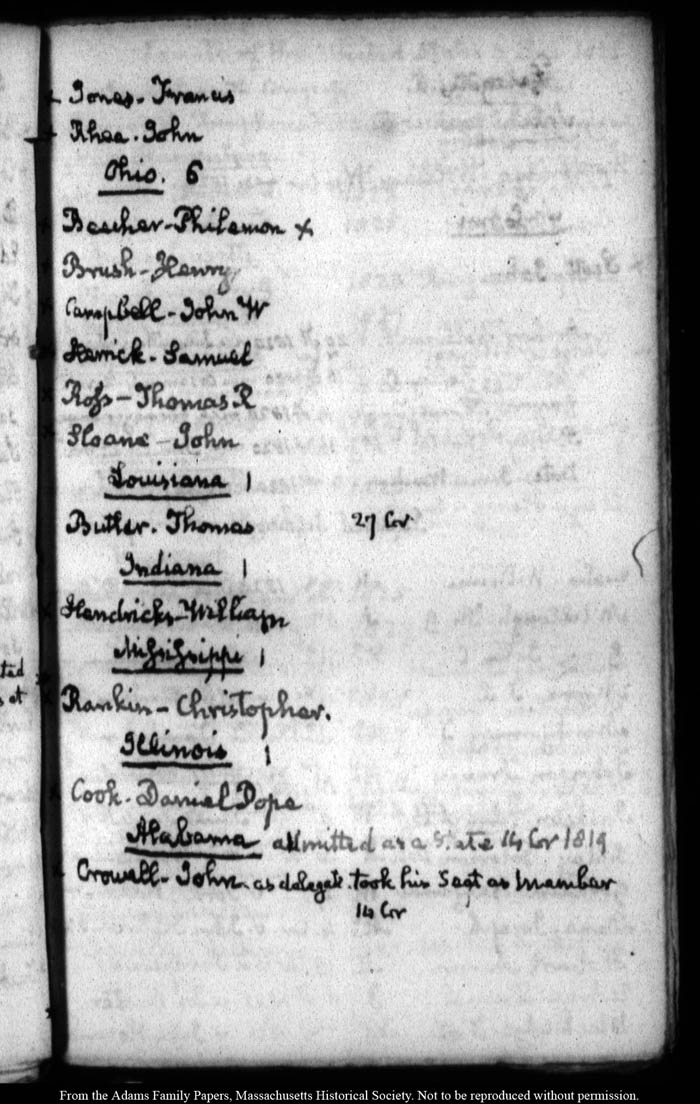 Jones - Francis
Rhea. John
Ohio. 6
Beecher - Philemon x
Brush - Henry
Campbell - John W
Herrick - Samuel
Ross - Thomas R
Sloane - John
Louisiana 1
Butler. Thomas 27 Cor
Indiana 1
Hendricks - William
Mississippi 1
Rankin - Christopher.
Illinois 1
Cook - Daniel Pope
Alabama admitted as a State 14 Cor 1819
Crowell - John. as delegate. took his Seat as member
14 Cor
ted
s at
From the Adams Family Papers, Massachusetts Historical Society. Not to be reproduced without permission.